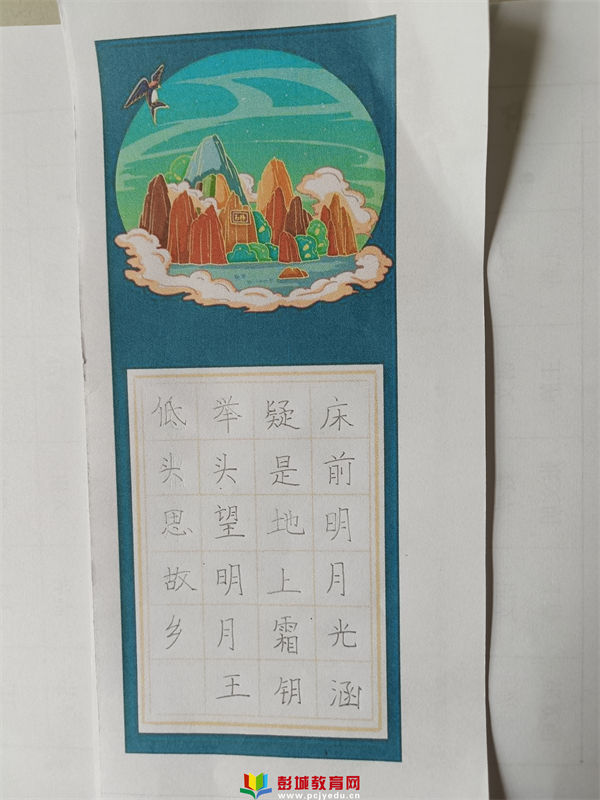 床前明月光
疑是地上霜
举头望明月
低头思故乡
王钥涵
彭城教育网
www.pcjyedu.cn